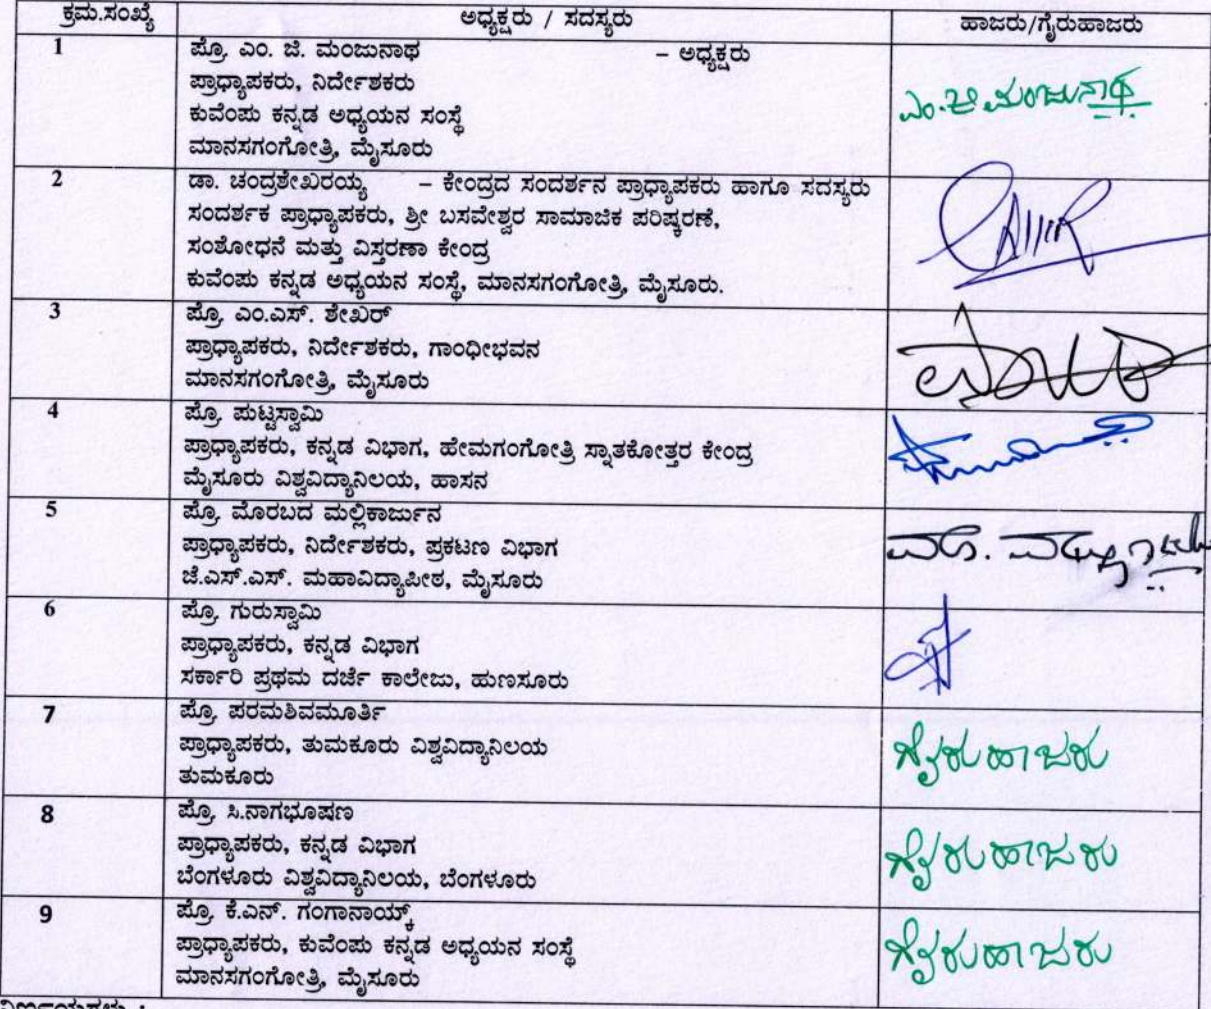 ಕ್ರಮ.ಸಂಖ್ಯೆ ಅಧ್ಯಕ್ಷರು / ಸದಸ್ಯರು ಹಾಜರು/ಗೈರುಹಾಜರು
1 ಪ್ರೊ. ಎಂ. ಜಿ. ಮಂಜುನಾಥ – ಅಧ್ಯಕ್ಷರು
ಪ್ರಾಧ್ಯಾಪಕರು, ನಿರ್ದೇಶಕರು
ಕುವೆಂಪು ಕನ್ನಡ ಅಧ್ಯಯನ ಸಂಸ್ಥೆ
ಮಾನಸಗಂಗೋತ್ರಿ, ಮೈಸೂರು
ಎಂ.ಜಿ ಮಂಜುನಾಥ
2 ಡಾ. ಚಂದ್ರಶೇಖರಯ್ಯ – ಕೇಂದ್ರದ ಸಂದರ್ಶನ ಪ್ರಾಧ್ಯಾಪಕರು ಹಾಗೂ ಸದಸ್ಯರು
ಸಂದರ್ಶಕ ಪ್ರಾಧ್ಯಾಪಕರು, ಶ್ರೀ ಬಸವೇಶ್ವರ ಸಾಮಾಜಿಕ ಪರಿಷ್ಕರಣೆ,
ಸಂಶೋಧನೆ ಮತ್ತು ವಿಸ್ತರಣಾ ಕೇಂದ್ರ
ಕುವೆಂಪು ಕನ್ನಡ ಅಧ್ಯಯನ ಸಂಸ್ಥೆ, ಮಾನಸಗಂಗೋತ್ರಿ, ಮೈಸೂರು.
3 ಪ್ರೊ. ಎಂ.ಎಸ್. ಶೇಖರ್
ಪ್ರಾಧ್ಯಾಪಕರು, ನಿರ್ದೇಶಕರು, ಗಾಂಧೀಭವನ
ಮಾನಸಗಂಗೋತ್ರಿ, ಮೈಸೂರು
4 ಪ್ರೊ. ಪುಟ್ಟಸ್ವಾಮಿ
ಪ್ರಾಧ್ಯಾಪಕರು, ಕನ್ನಡ ವಿಭಾಗ, ಹೇಮಗಂಗೋತ್ರಿ ಸ್ನಾತಕೋತ್ತರ ಕೇಂದ್ರ
ಮೈಸೂರು ವಿಶ್ವವಿದ್ಯಾನಿಲಯ, ಹಾಸನ
5 ಪ್ರೊ. ಮೊರಬದ ಮಲ್ಲಿಕಾರ್ಜುನ
ಪ್ರಾಧ್ಯಾಪಕರು, ನಿರ್ದೇಶಕರು, ಪ್ರಕಟಣ ವಿಭಾಗ
ಜೆ.ಎಸ್.ಎಸ್. ಮಹಾವಿದ್ಯಾಪೀಠ, ಮೈಸೂರು
6 ಪ್ರೊ. ಗುರುಸ್ವಾಮಿ
ಪ್ರಾಧ್ಯಾಪಕರು, ಕನ್ನಡ ವಿಭಾಗ
ಸರ್ಕಾರಿ ಪ್ರಥಮ ದರ್ಜೆ ಕಾಲೇಜು, ಹುಣಸೂರು
7 ಪ್ರೊ. ಪರಮಶಿವಮೂರ್ತಿ
ಪ್ರಾಧ್ಯಾಪಕರು, ತುಮಕೂರು ವಿಶ್ವವಿದ್ಯಾನಿಲಯ
ತುಮಕೂರು
ಗೈರುಹಾಜರು
8 ಪ್ರೊ. ಸಿ.ನಾಗಭೂಷಣ
ಪ್ರಾಧ್ಯಾಪಕರು, ಕನ್ನಡ ವಿಭಾಗ
ಬೆಂಗಳೂರು ವಿಶ್ವವಿದ್ಯಾನಿಲಯ, ಬೆಂಗಳೂರು
ಗೈರುಹಾಜರು
9 ಪ್ರೊ. ಕೆ.ಎನ್. ಗಂಗಾನಾಯ್ಕ್
ಪ್ರಾಧ್ಯಾಪಕರು, ಕುವೆಂಪು ಕನ್ನಡ ಅಧ್ಯಯನ ಸಂಸ್ಥೆ
ಮಾನಸಗಂಗೋತ್ರಿ, ಮೈಸೂರು
ಗೈರುಹಾಜರು